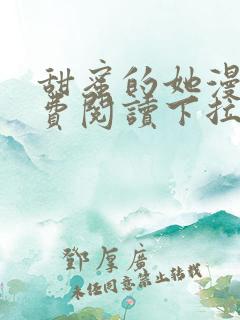 甜蜜的她漫
費閱讀下拉
鄧厚廣
未经同意禁止转载